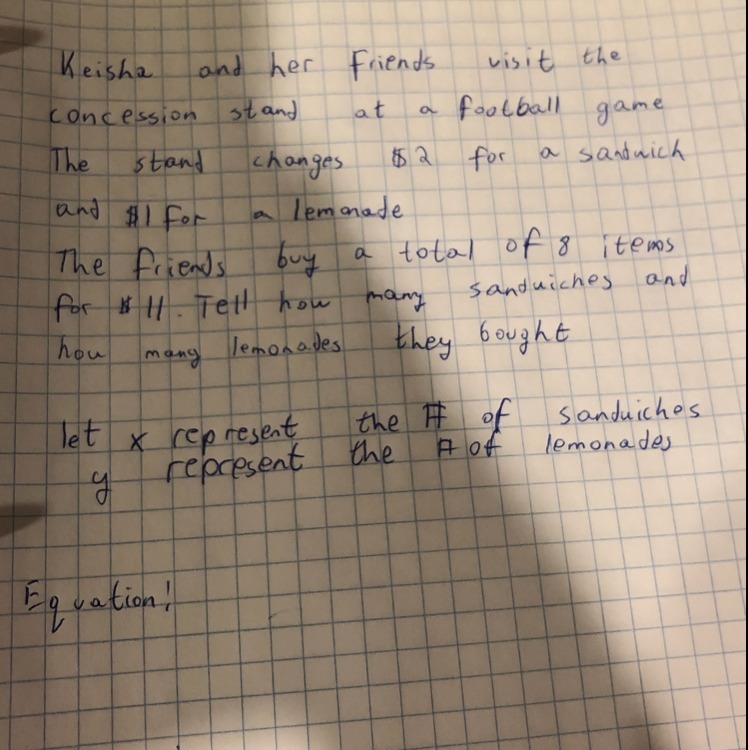 Keisha and her friends visit the
concession stand at a football game
The stand changes $2 for a sandwich
and $1 for a lemonade
The friends buy a total of 8 items
for $11. Tell how many sandwiches and
how many lemonades they bought
let x represent the # of sandwiches
y represent the # of lemonades
Equation!